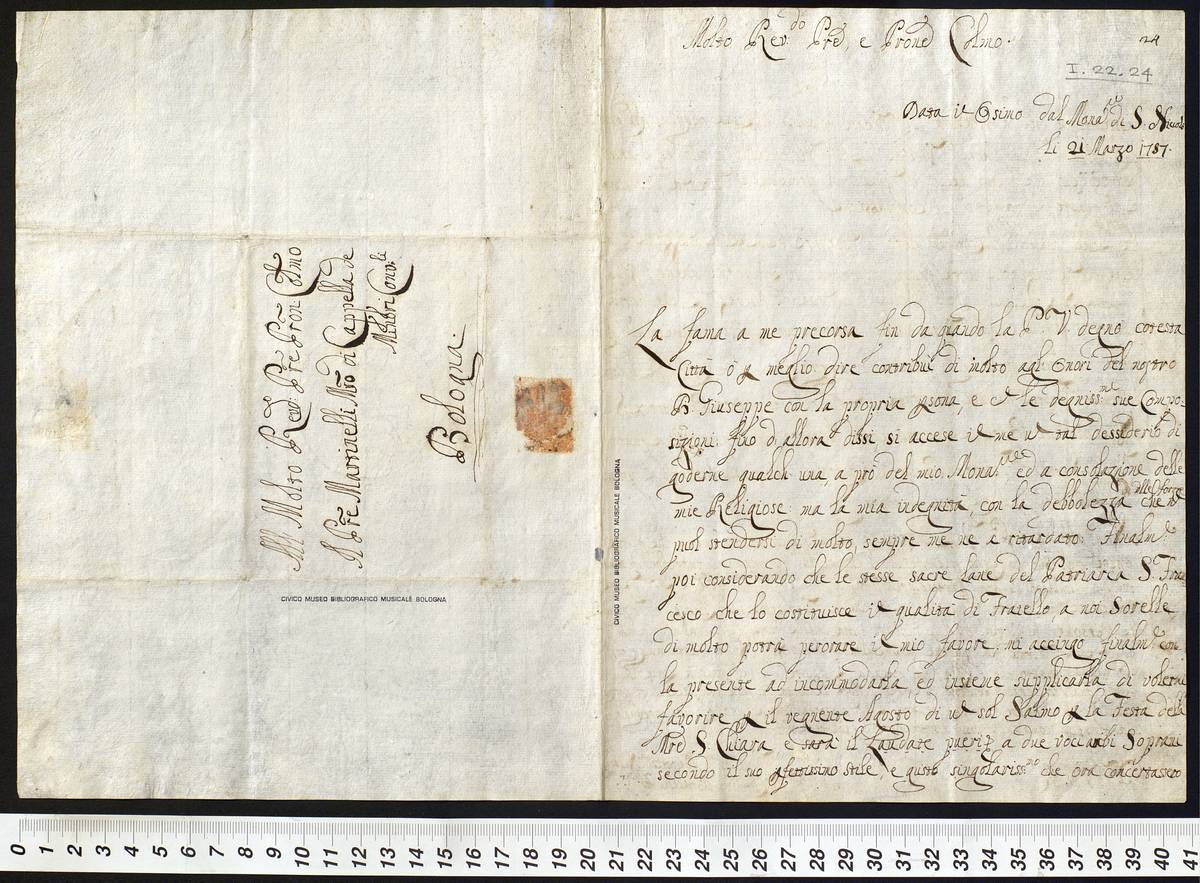 All Molto Rev.do P.re P.re Pron: Colmo
Il P.re Martinelli M.ro di Cappella de
Minori Conv.li
Bologna.
CIVICO MUSEO BIBLIOGRAFICO MUSICALE BOLOGNA
CIVICO MUSEO BIBLIOGRAFICO MUSICALE BOLOGNA
Molto Rev.do Pre, e Prone Colmo.
24
I. 22. 24
Data in Osimo dal Mona.re di S. Niccolò
li 21 Marzo 1757.
La fama a me precorsa fin da quando la P. V. degnò cotesta
Città o p meglio dire contribuì di molto agl Onori del nostro
B. Giuseppe con la propria psona, e con le degniss.me sue Compo-
sizioni: fino d'allora dissi si accese in me un tal dessiderio di
goderne qualch'una a prò del mio Mona.re ed a consolazione delle
mie Religiose: ma la mia indegnità, con la debbolezza delle forze che non
puol stendersi di molto, sempre me ne è ritardato. Finalm.e
poi considerando che le stesse sacre lane del Patriarca S. Fran
cesco che lo costituisce in qualità di Fratello, a noi Sorelle
di molto potrà perorare in mio favore, mi accingo finalm.e con
la presente ad incommodarla ed insieme supplicarla di volermi
favorire p il vegnente Agosto di un sol Salmo p la Festa della
Mre S. Chiara e sarà il Laudate pueri p a due voci ambi Soprani
secondo il suo pfettissimo stile, e gusto singolariss.mo che ora concertassero